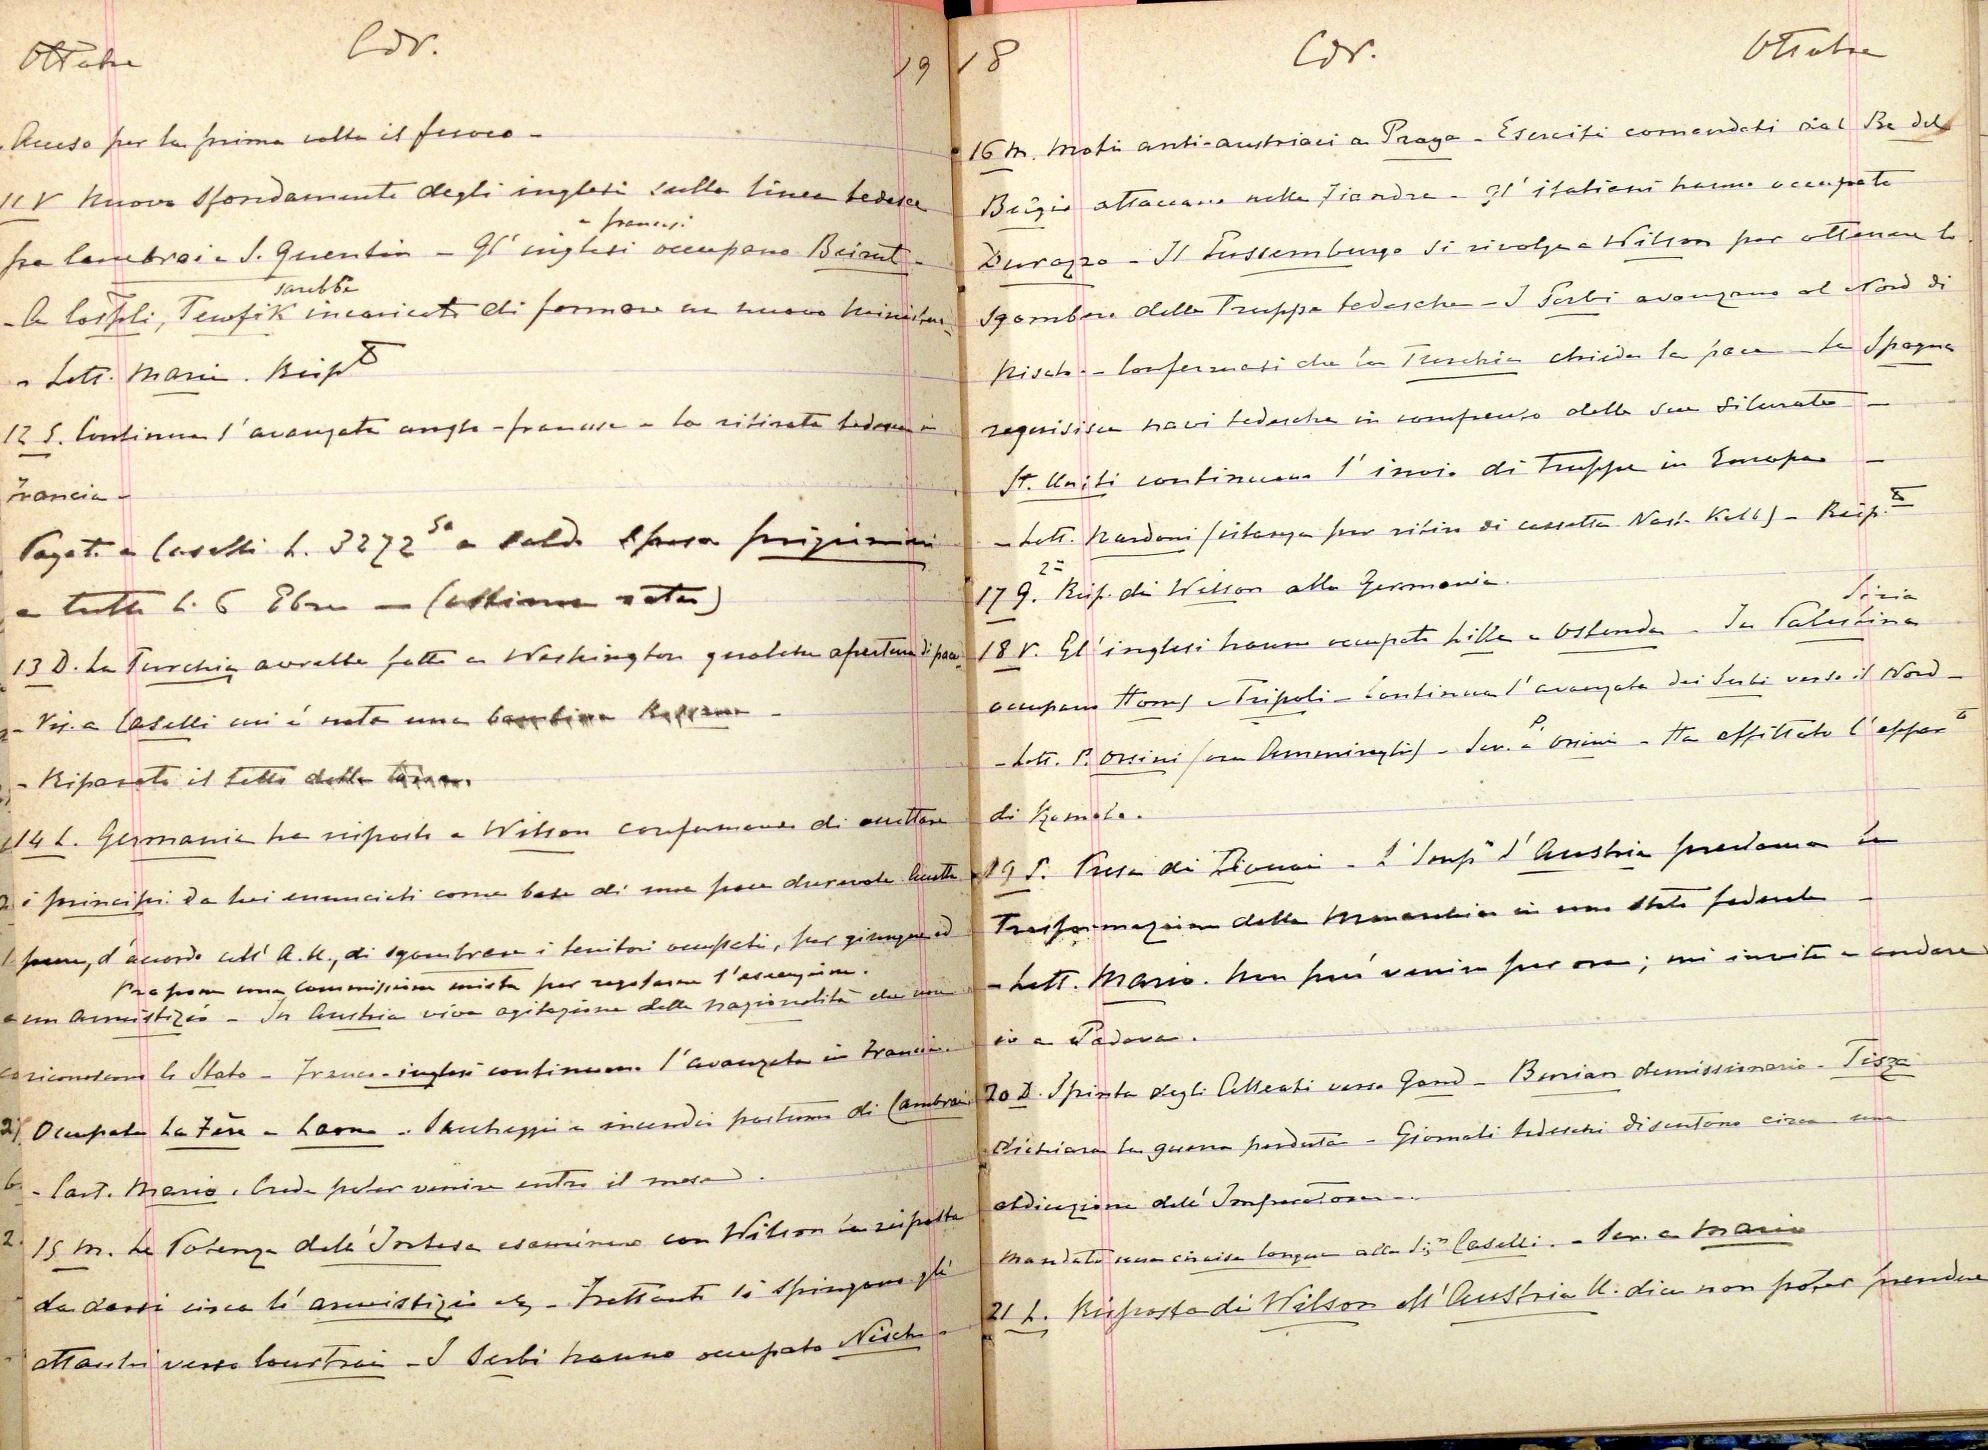 Ottobre Cdr. 19
Acceso per la prima volta il fuoco -
11 V Nuovo sfondamento degli inglesi sulla linea tedesca
e francesi
fra Cambrai e S. Quentin - Gl' inglesi occupano Beirut -
sarebbe
- A Cospoli, Tewfik incaricato di formare un nuovo Ministero
- Lett. Mario. Risp
12 S. Continua l'avanzata anglo-francese e la ritirata tedesca in
Francia -
Pagato a Caselli L. 3272 50 a saldo spesa prigionieri
a tutto L. 6 Ebre - (ultima rata)
13 D. La Turchia avrebbe fatto a Washington qualche apertura di pace
- Vis. a Caselli cui è nata una bambina
- Riparato il tetto della
14 L. Germania ha risposto a Wilson confermando di accettare
i principi da lui enunciati come base di una pace durevole Accetta
pure, d'accordo coll' A.U., di sgombrare i territori occupati, per giungere ad
Propone una commissione mista per regolarne l'esecuzione.
un armistizio - In Austria viva agitazione delle nazionalità che non
riconoscono lo Stato - Franco-inglesi continuano l'avanzata in Francia.
Occupata La Fère e Laon - Saccheggi e incendi partenza di Cambrai
- Cart. Mario. Crede poter venire entro il mese.
15 M. Le Potenze dell' Intesa esaminano con Wilson la risposta
da darsi circa l' armistizio - Frattanto si spingono gli
attacchi verso Courtrai - I Serbi hanno occupato Nisch -
18 Cdr. Ottobre
16 M. Moti anti-austriaci a Praga - Eserciti comandati dal Re del
Belgio attaccano nelle Fiandre - Gl' italiani hanno occupato
Durazzo - Il Lussemburgo si rivolge a Wilson per ottenere lo
sgombero delle Truppe tedesche - I Serbi avanzano al Nord di
Nisch - Confermasi che la Turchia chiede la pace - La Spagna
requisisce navi tedesche in compenso delle sue silurate -
St. Uniti continuano l'invio di Truppe in Europa -
- Lett. Nardoni (istanza per ritiro di cassetta Nast. Kelb) - Risp.
2ª
17 G. Risp. di Wilson alla Germania.
Siria
18 V. Gl'inglesi hanno occupato Lilla e Ostenda - In Palestina
occupano Homs e Tripoli - Continua l'avanzata dei Serbi verso il Nord -
- Lett. P. Orsini (ora Ammiraglio) - Scr. a P. Orsini - Ha affittato l'appar to
di
19 S. Presa di Douai - L' Imp e d'Austria proclama la
Trasformazione della Monarchia in uno stato federale -
- Lett. Mario. Non può venire per ora; mi invita a andare
io a Padova.
20 D. Spinta degli Alleati verso Gand - Burian dimissionario - Tisza
dichiara la guerra perduta - Giornali tedeschi discutono circa una
abdicazione dell' Imperatore -
Mandato una alla Sig ra Caselli. - Scr. a Mario
21 L. Risposta di Wilson all'Austria U. dice non poter prendere